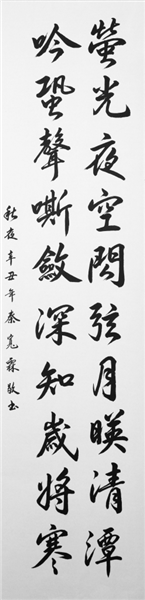 螢光夜空閃弦月暎清潭
吟蛩聲嘶斂深知歲將寒
秋夜辛丑年秦嵬霖敬書